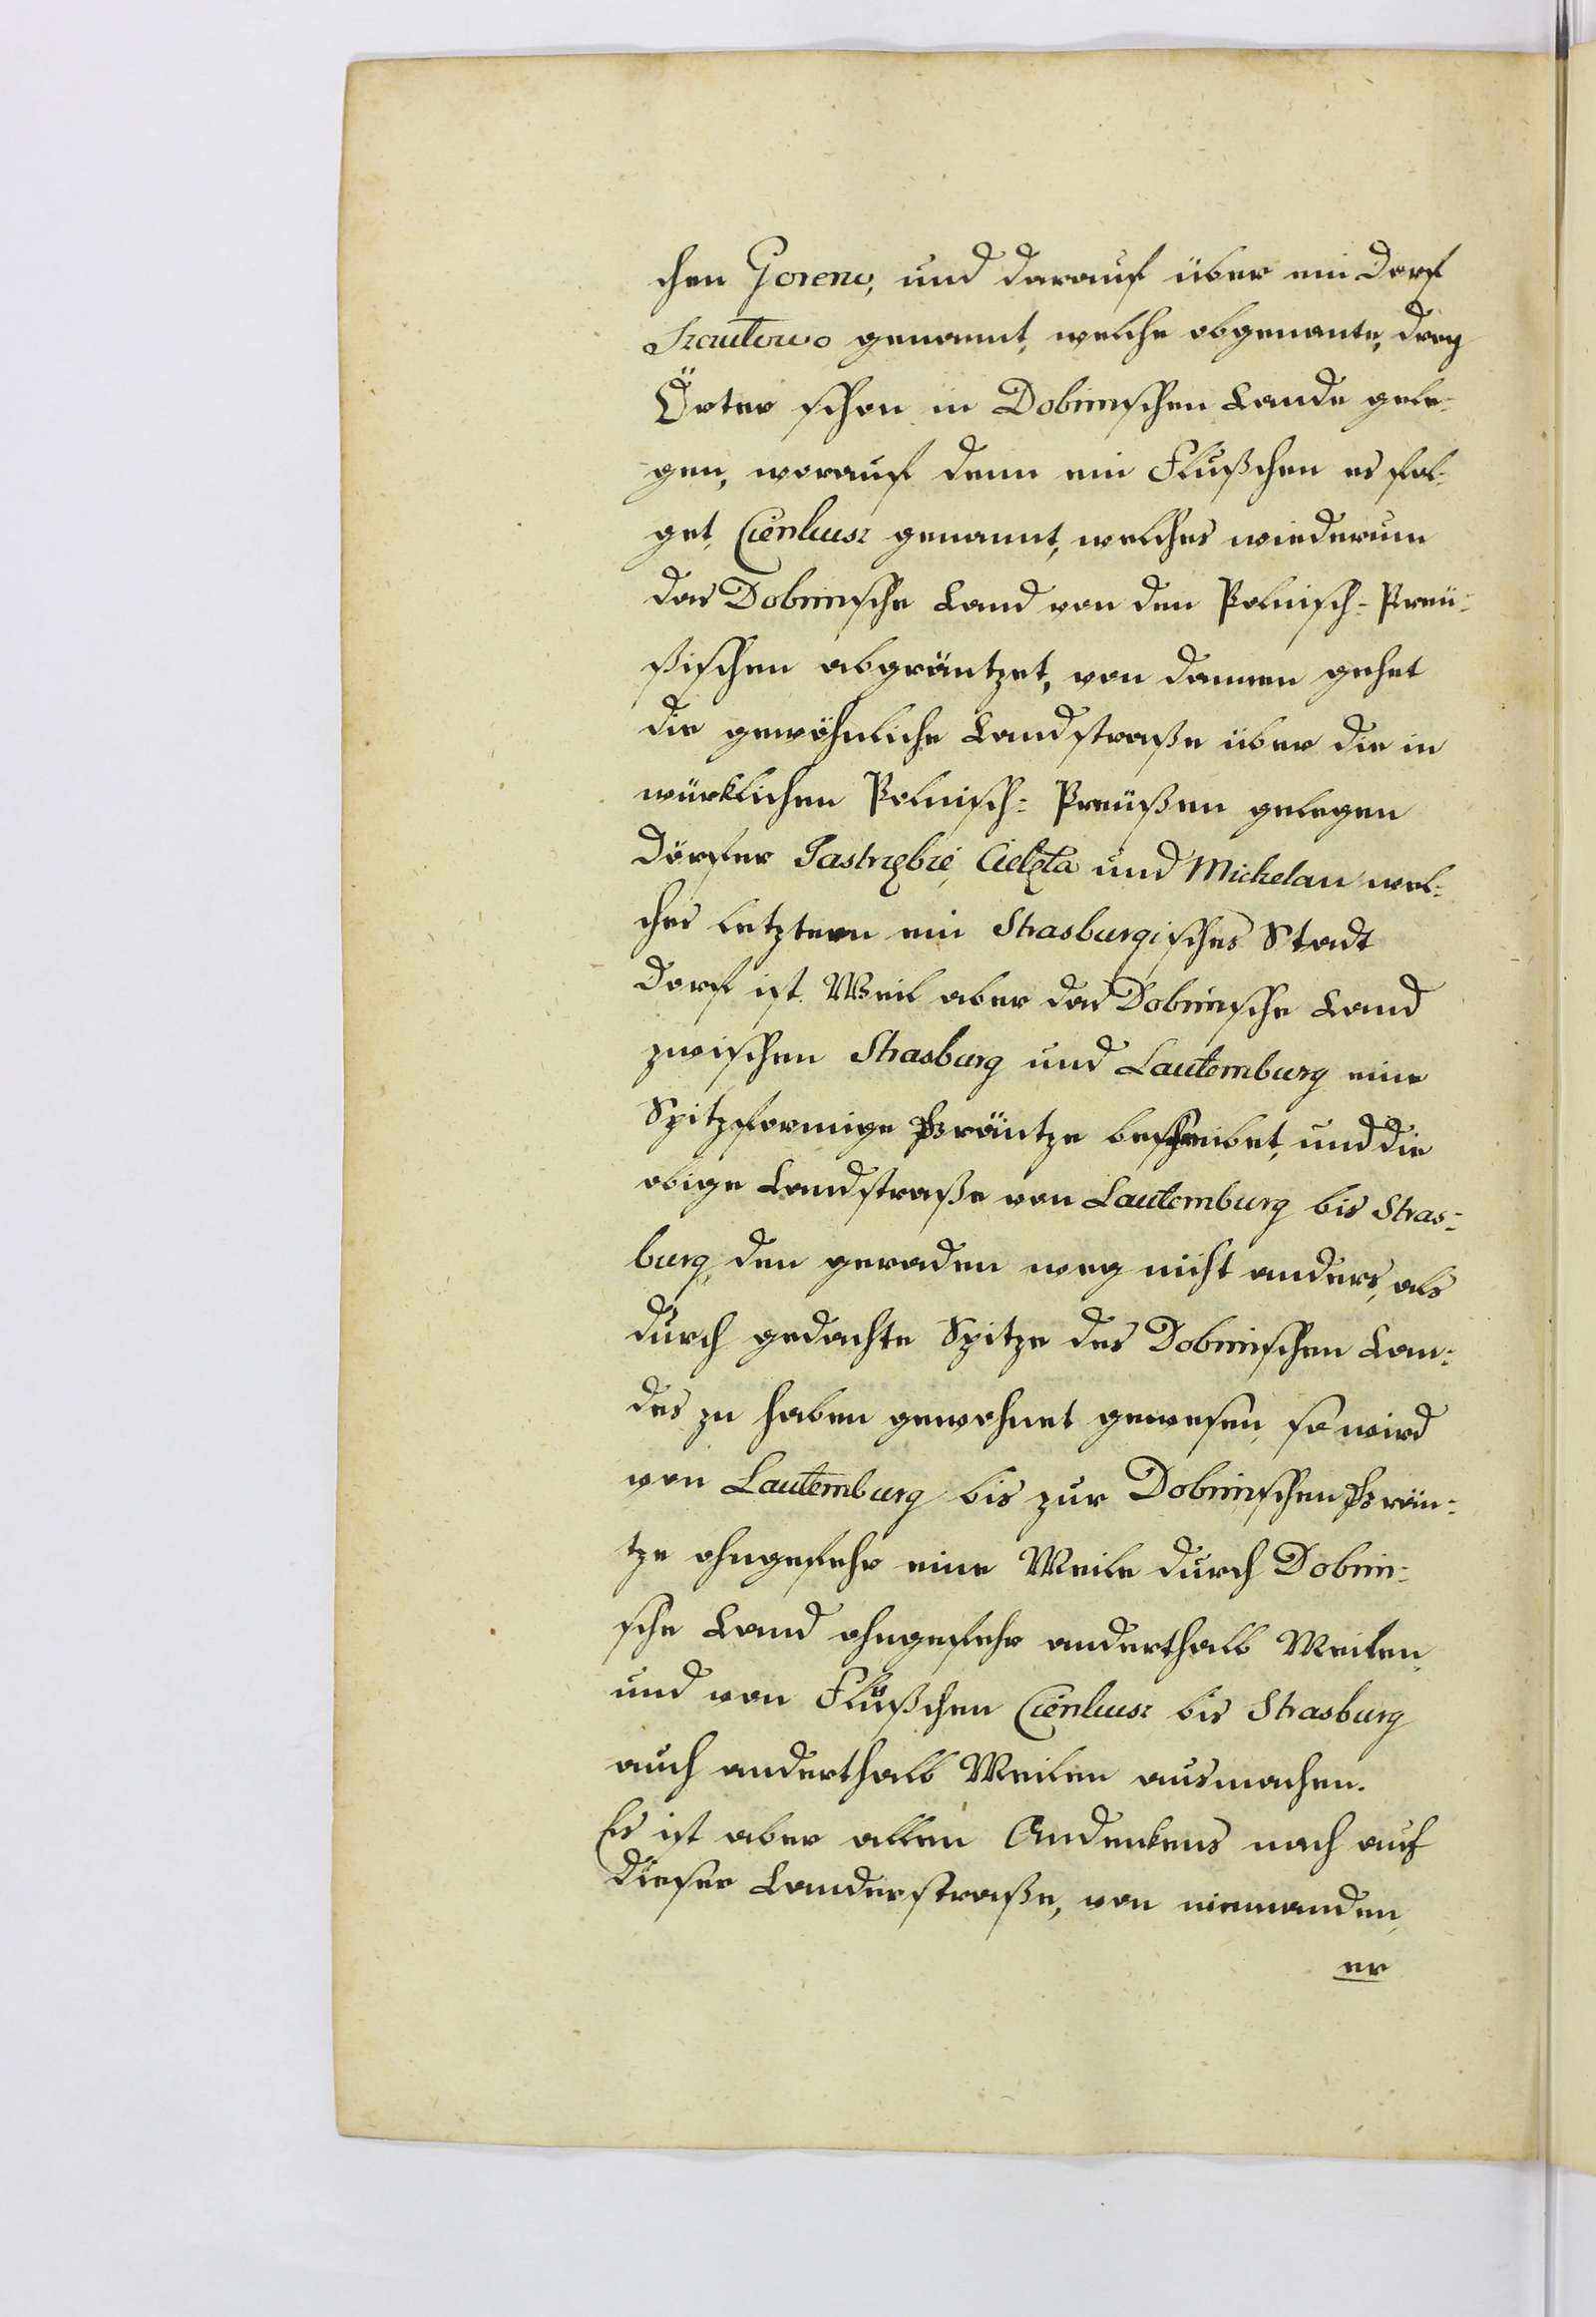 chen Goreno, und darauf über ein Dorf
Szczutowo genannt, welche obgenante, drey
Örter schon in Dobrinschen Lande gele-
gen, worauf denn ein Flußchen es fol-
get, Cienkusz genannt, welches wiederum
das Dobrinsche Land von den Polnisch-Preü-
ßischen abgräntzet, von dannen gehet
die gewöhnliche Landstraße über die in
würklichen Polnisch-Preüßen gelegen
Dörfer Jastrzębie, Cielęta und Michelau wel-
ches letztern ein Strasburgisches Stadt
Dorf ist. Weil aber das Dobrinsche Land
zwischen Strasburg und Lautemburg eine
Spitzformige Gräntze beschreibet, und die
obige Landstraße von Lautemburg bis Stras-
burg, den geraden weg nicht anders, als
durch gedachte Spitze des Dobrinschen Lan-
des zu haben gewohnet gewesen, so wird
von Lautemburg bis zur Dobrinschen Grän-
tze ohngefehr eine Meile durch Dobrin-
sche Land ohngefehr anderthalb Meilen,
und von Flüßchen Cienkusz bis Strasburg
auch anderthalb Meilen ausmachen.
Es ist aber allen Andenkens nach auf
dieser Landesstraße, von niemanden,
er